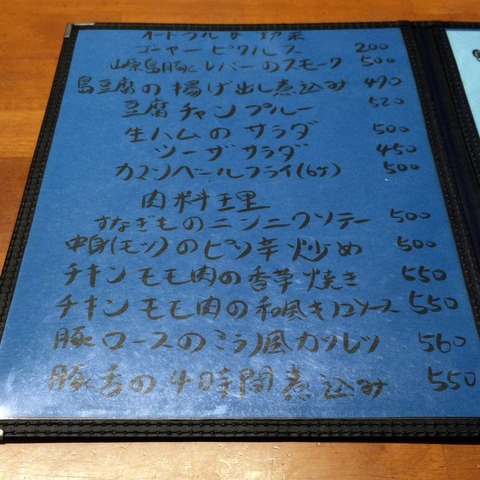 ゴーヤーピクルス 200
山原島豚レバーのスモーク 500
島豆腐の揚げ出し煮込み 490
豆腐チャンプルー 520
生ハムのサラダ 500
シーザサラダ 450
カマンベールフライ(6ケ) 500
肉料理
すなぎものニンニクソテー 500
中身(モツ)のピリ辛炒め 500
チキンモモ肉の香草焼き 550
チキンモモ肉の和風キノコソース 550
豚ロースのミラノ風カツレツ 560
豚舌の40時間煮込み 550